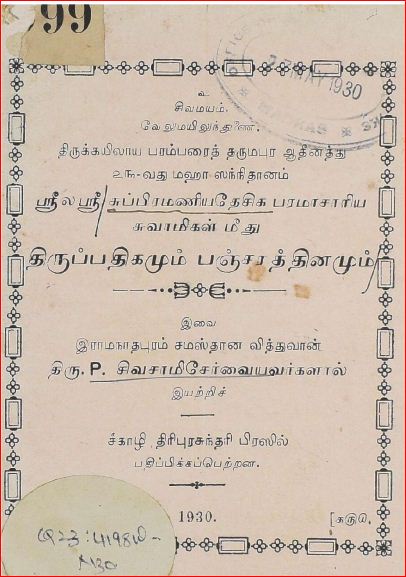 99
27 MAY 1930
MADRAS
உ
சிவமயம்.
வேலுமயிலுந்துணை.
திருக்கயிலாய பரம்பரைத் தருமபுர ஆதீனத்து
உ௩-வது மஹா ஸந்நிதானம்
ஸ்ரீலஸ்ரீ சுப்பிரமணியதேசிக பரமாசாரிய
சுவாமிகள் மீது
திருப்பதிகமும் பஞ்சரத்தினமும்
இவை
இராமநாதபுரம் சமஸ்தான வித்துவான்
திரு. P. சிவசாமிசேர்வையவர்களால்
இயற்றிச்
சீகாழி திரிபுரசுந்தரி பிரஸில்
பதிப்பிக்கப்பெற்றன.
1930.
N30